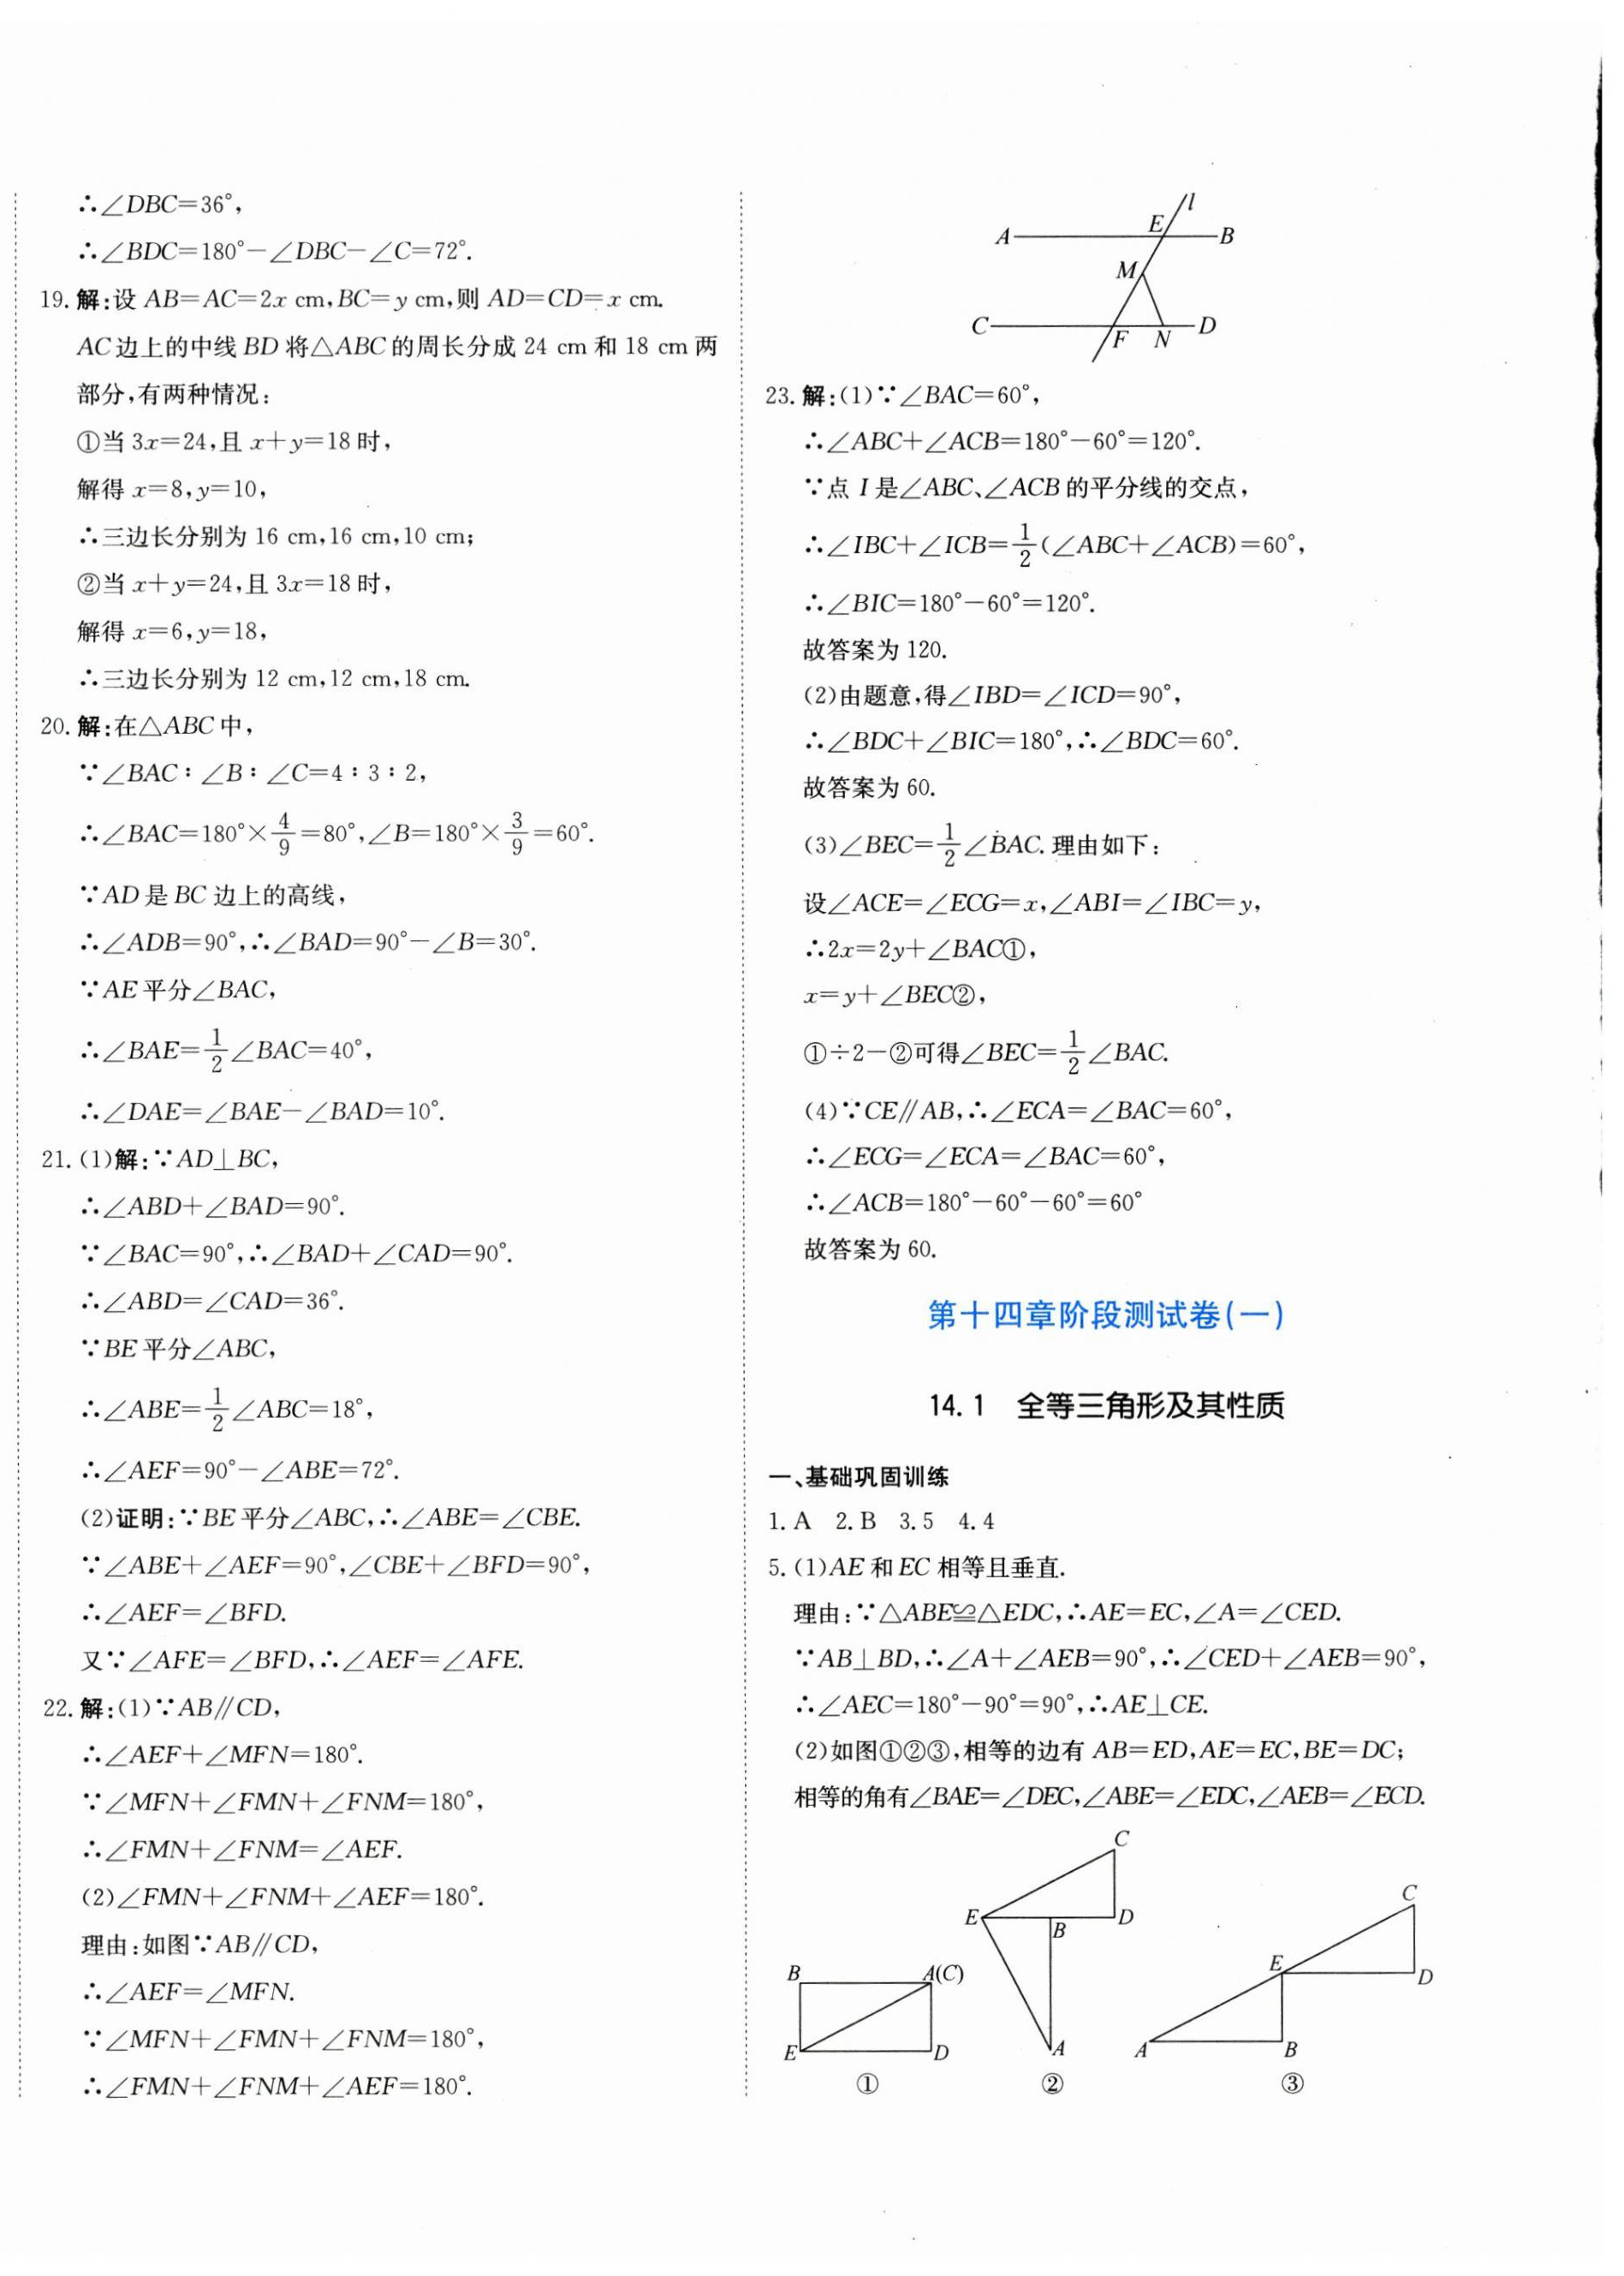 ∴∠DBC=36°,
∴∠BDC=180°-∠DBC-∠C=72°.
19. 解:设 AB=AC=2x cm,BC=y cm,则 AD=CD=x cm.
AC 边上的中线 BD 将△ABC 的周长分成 24 cm 和 18 cm 两
部分,有两种情况:
①当 3x=24,且 x+y=18 时,
解得 x=8,y=10,
∴三边长分别为 16 cm,16 cm,10 cm;
②当 x+y=24,且 3x=18 时,
解得 x=6,y=18,
∴三边长分别为 12 cm,12 cm,18 cm.
20. 解:在△ABC 中,
∵∠BAC∶∠B∶∠C=4∶3∶2,
∴∠BAC=180°×4/9=80°,∠B=180°×3/9=60°.
∵AD 是 BC 边上的高线,
∴∠ADB=90°,∴∠BAD=90°-∠B=30°.
∵AE 平分∠BAC,
∴∠BAE=1/2∠BAC=40°,
∴∠DAE=∠BAE-∠BAD=10°.
21. (1)解:∵AD⊥BC,
∴∠ABD+∠BAD=90°.
∵∠BAC=90°,∴∠BAD+∠CAD=90°.
∴∠ABD=∠CAD=36°.
∵BE 平分∠ABC,
∴∠ABE=1/2∠ABC=18°,
∴∠AEF=90°-∠ABE=72°.
(2)证明:∵BE 平分∠ABC,∴∠ABE=∠CBE.
∵∠ABE+∠AEF=90°,∠CBE+∠BFD=90°,
∴∠AEF=∠BFD.
又∵∠AFE=∠BFD,∴∠AEF=∠AFE.
22. 解:(1)∵AB∥CD,
∴∠AEF+∠MFN=180°.
∵∠MFN+∠FMN+∠FNM=180°,
∴∠FMN+∠FNM=∠AEF.
(2)∠FMN+∠FNM+∠AEF=180°.
理由:如图∵AB∥CD,
∴∠AEF=∠MFN.
∵∠MFN+∠FMN+∠FNM=180°,
∴∠FMN+∠FNM+∠AEF=180°.
l
A E B
M
C F N D
23. 解:(1)∵∠BAC=60°,
∴∠ABC+∠ACB=180°-60°=120°.
∵点 I 是∠ABC、∠ACB 的平分线的交点,
∴∠IBC+∠ICB=1/2(∠ABC+∠ACB)=60°,
∴∠BIC=180°-60°=120°.
故答案为 120.
(2)由题意,得∠IBD=∠ICD=90°,
∴∠BDC+∠BIC=180°,∴∠BDC=60°.
故答案为 60.
(3)∠BEC=1/2∠BAC. 理由如下:
设∠ACE=∠ECG=x,∠ABI=∠IBC=y,
∴2x=2y+∠BAC①,
x=y+∠BEC②,
①÷2-②可得∠BEC=1/2∠BAC.
(4)∵CE∥AB,∴∠ECA=∠BAC=60°,
∴∠ECG=∠ECA=∠BAC=60°,
∴∠ACB=180°-60°-60°=60°
故答案为 60.
第十四章阶段测试卷(一)
14.1 全等三角形及其性质
一、基础巩固训练
1. A 2. B 3. 5 4. 4
5. (1)AE 和 EC 相等且垂直.
理由:∵△ABE≌△EDC,∴AE=EC,∠A=∠CED.
∵AB⊥BD,∴∠A+∠AEB=90°,∴∠CED+∠AEB=90°,
∴∠AEC=180°-90°=90°,∴AE⊥CE.
(2)如图①②③,相等的边有 AB=ED,AE=EC,BE=DC;
相等的角有∠BAE=∠DEC,∠ABE=∠EDC,∠AEB=∠ECD.
B A(C)
E D
①
C
E B D
A
②
C
E D
A B
③